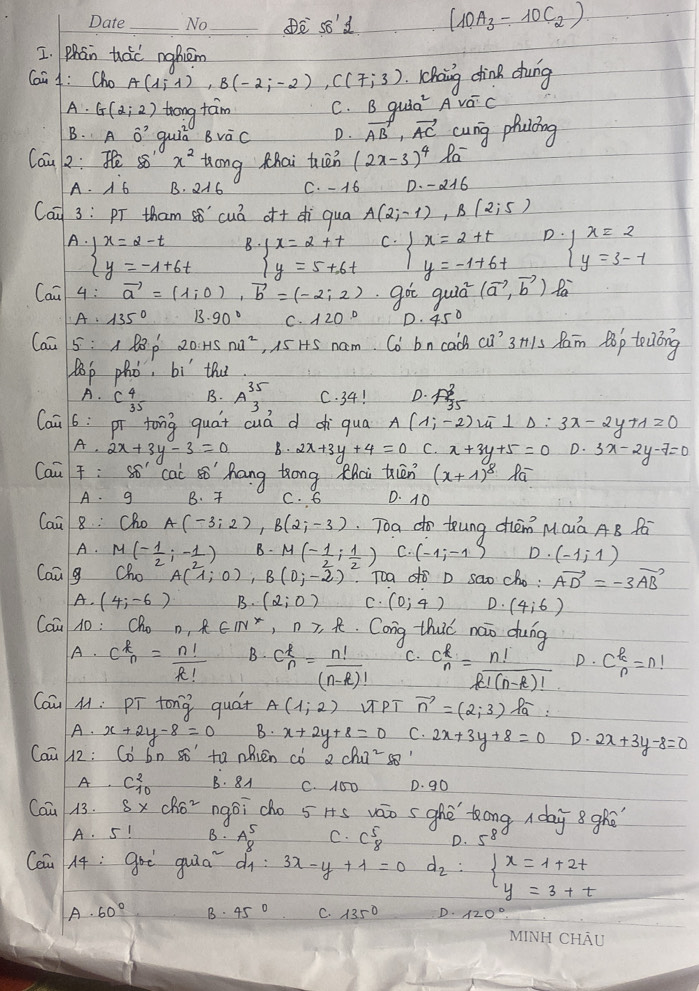 Date ______ No ______ Đề số 1 (10A3 - 10C2)
I. Phần trắc nghiệm
Câu 1: Cho A(1;1), B(-2;-2), C(7;3). Khẳng định đúng
A. G(2;2) trọng tâm C. B giữa A và C
B. A ở giữa B và C D. \vec{AB}, \vec{AC} cùng phương
Câu 2: Hệ số x² trong khai triển (2x-3)⁴ là
A. 16 B. 216 C. -16 D. -216
Câu 3: PT tham số của đt đi qua A(2;-1), B(2;5)
A. { x = 2-t B. { x = 2+t C. { x = 2+t D. { x = 2
y = -1+6t y = 5+6t y = -1+6t y = 3-t
Câu 4: \vec{a} = (1;0), \vec{b} = (-2;2). góc giữa (\vec{a}, \vec{b}) là
A. 135° B. 90° C. 120° D. 45°
Câu 5: 1 lớp 20 HS nữ, 15 HS nam. Có bn cách cử 3 H/s làm lớp trưởng
lớp phó, bí thư.
A. C_{35}^{4} B. A_{3}^{35} C. 34! D.
Câu 6: PT tổng quát của d đi qua A(1;-2) và ⊥ Δ: 3x-2y+1=0
A. 2x+3y-3=0 B. 2x+3y+4=0 C. x+3y+5=0 D. 3x-2y-7=0
Câu 7: Số các số hạng trong khai triển (x+1)⁸ là
A. 9 B. 7 C. 6 D. 10
Câu 8: Cho A(-3;2), B(2;-3). Tọa độ trung điểm M của AB là
A. M(-1/2; -1/2) B. M(-1/2; 1/2) C. (-1;-1) D. (-1;1)
Câu 9 Cho A(1;0), B(0;-2). Tọa độ D sao cho: \vec{AD} = -3\vec{AB}
A. (4;-6) B. (2;0) C. (0;4) D. (4;6)
Câu 10: Cho n, k ∈ IN*, n ≥ k. Công thức nào đúng
A. C_n^k = n!/k! B. C_n^k = n!/(n-k)! C. C_n^k = n!/k!(n-k)! D. C_n^k = n!
Câu 11: PT tổng quát A(1;2) VTPT \vec{n} = (2;3) là:
A. x+2y-8=0 B. x+2y+8=0 C. 2x+3y+8=0 D. 2x+3y-8=0
Câu 12: Có bn số tự nhiên có 2 chữ số
A. C_{10}^{2} B. 81 C. 100 D. 90
Câu 13. Sx chỗ ngồi cho 5 HS vào 5 ghế trong 1 dãy 8 ghế
A. 5! B. A_8^5 C. C_8^5 D. 5⁸
Câu 14: Góc giữa d₁: 3x-y+1=0 d₂: { x = 1+2t
y = 3+t
A. 60° B. 45° C. 135° D. 120°
MINH CHÂU